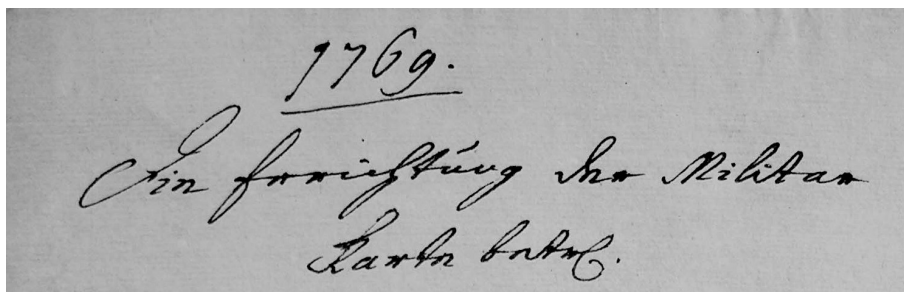 1769.
Die Errichtung der Militar
Karte betrl.